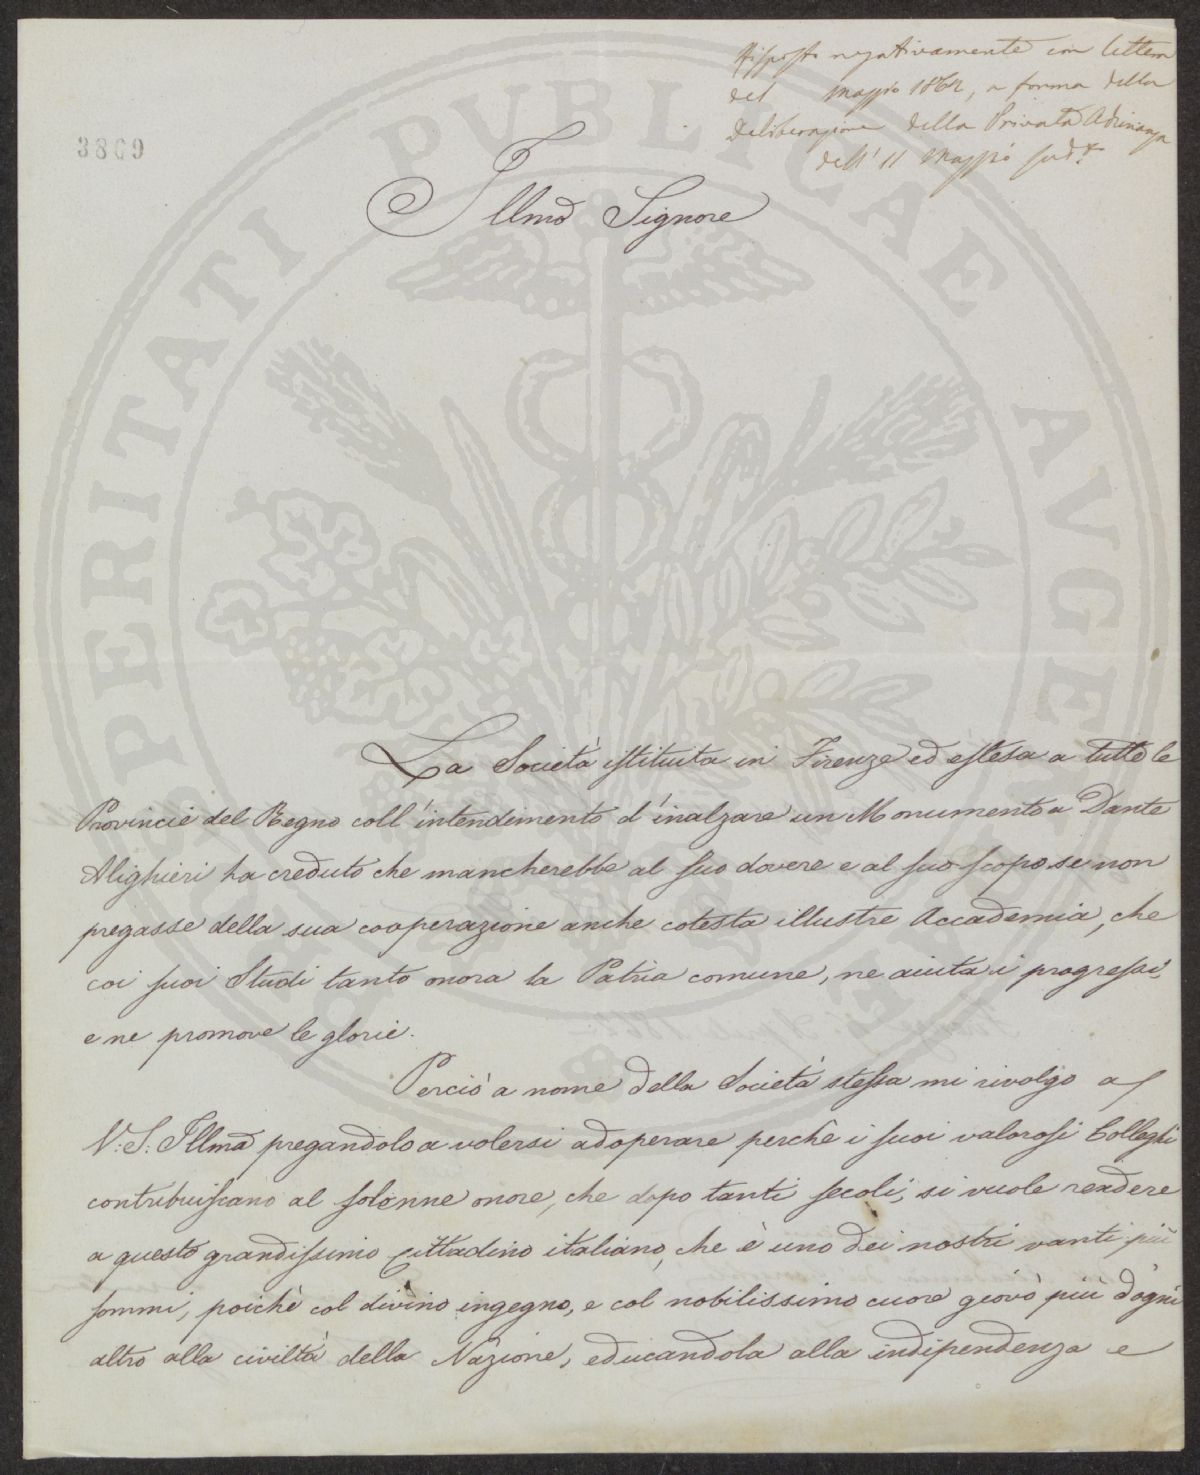 Risposto negativamente con lettera
del maggio 1862, a forma della
Deliberazione della Privata Adunanza
dell' 11 Maggio sud.º
3869
Illmo Signore
La Società istituita in Firenze ed estesa a tutte le
Provincie del Regno coll'intendimento d'inalzare un Monumento a Dante
Alighieri ha creduto che mancherebbe al suo dovere e al suo scopo se non
pregasse della sua cooperazione anche cotesta illustre Accademia, che
coi suoi Studi tanto onora la Patria comune, ne aiuta i progressi,
e ne promove le glorie.
Perciò a nome della Società stessa mi rivolgo a
V.S. Illma pregandolo a volersi adoperare perchè i suoi valorosi Colleghi
contribuiscano al solenne onore, che dopo tanti secoli, si vuole rendere
a questo grandissimo Cittadino italiano, che è uno dei nostri vanti più
sommi, poichè col divino ingegno, e col nobilissimo cuore giovò più d'ogni
altro alla civiltà della Nazione, educandola alla indipendenza e
PROSPERITATI PUBLICAE AUGENDAE